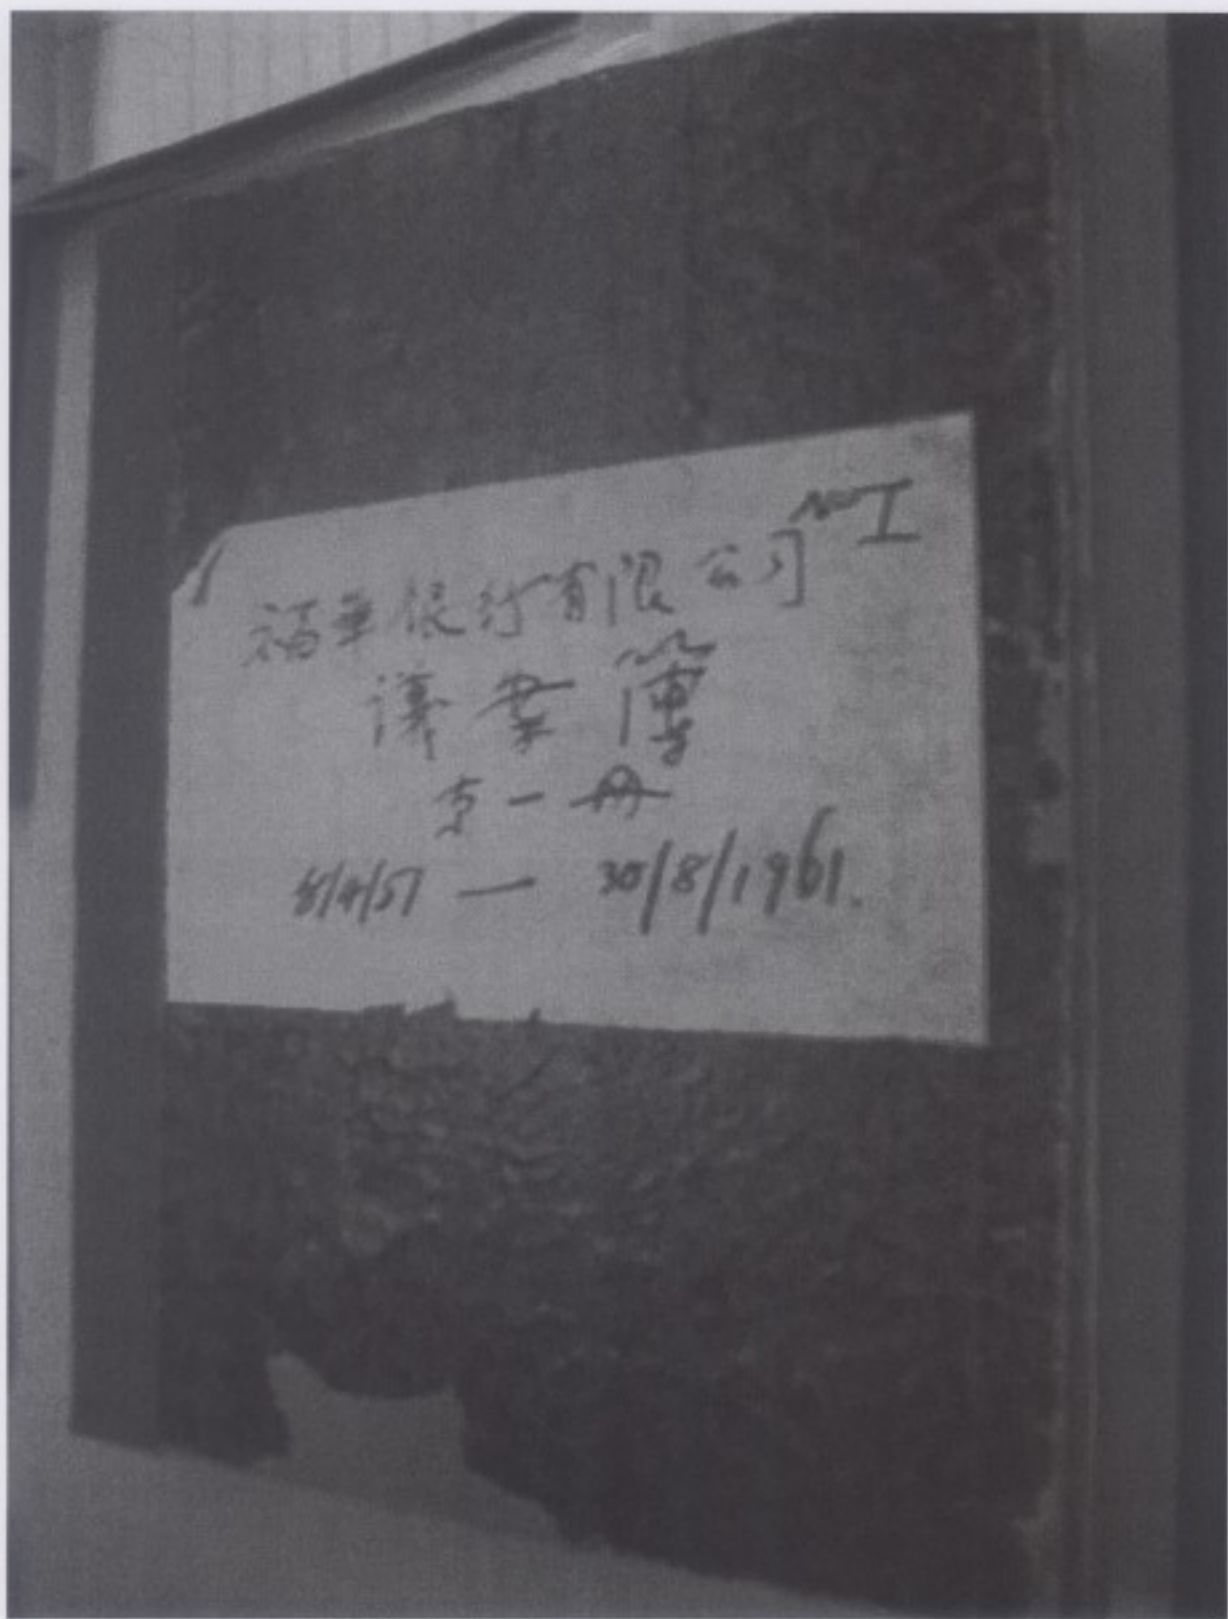 No I
福華银行有限公司
議案簿
第一册
8/4/57 — 30/8/1961.